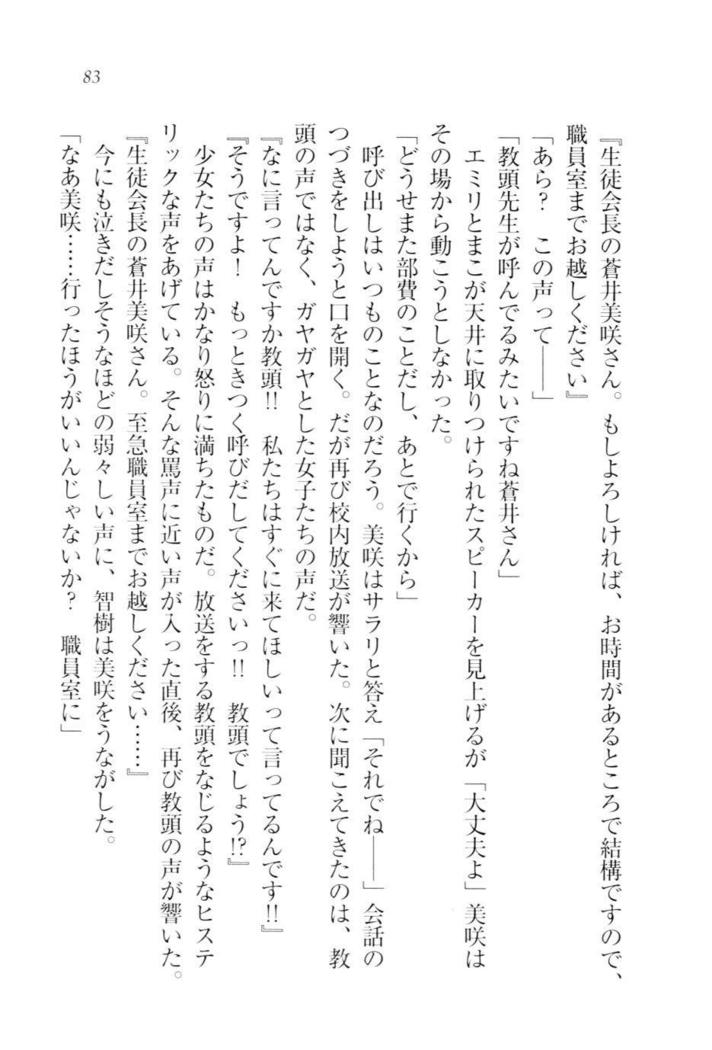 83
『生徒会長の蒼井美咲さん。もしよろしければ、お時間があるところで結構ですので、
職員室までお越しください』
「あら？　この声って――」
「教頭先生が呼んでるみたいですね蒼井さん」
　エミリとまこが天井に取りつけられたスピーカーを見上げるが「大丈夫よ」美咲は
その場から動こうとしなかった。
「どうせまた部費のことだし、あとで行くから」
　呼び出しはいつものことなのだろう。美咲はサラリと答え「それでね――」会話の
つづきをしようと口を開く。だが再び校内放送が響いた。次に聞こえてきたのは、教
頭の声ではなく、ガヤガヤとした女子たちの声だ。
『なに言ってんですか教頭!!　私たちはすぐに来てほしいって言ってるんです!!』
『そうですよ！　もっときつく呼びだしてくださいっ!!　教頭でしょう!?』
　少女たちの声はかなり怒りに満ちたものだ。放送をする教頭をなじるようなヒステ
リックな声をあげている。そんな罵声に近い声が入った直後、再び教頭の声が響いた。
『生徒会長の蒼井美咲さん。至急職員室までお越しください……』
　今にも泣きだしそうなほどの弱々しい声に、智樹は美咲をうながした。
「なあ美咲……行ったほうがいいんじゃないか？　職員室に」